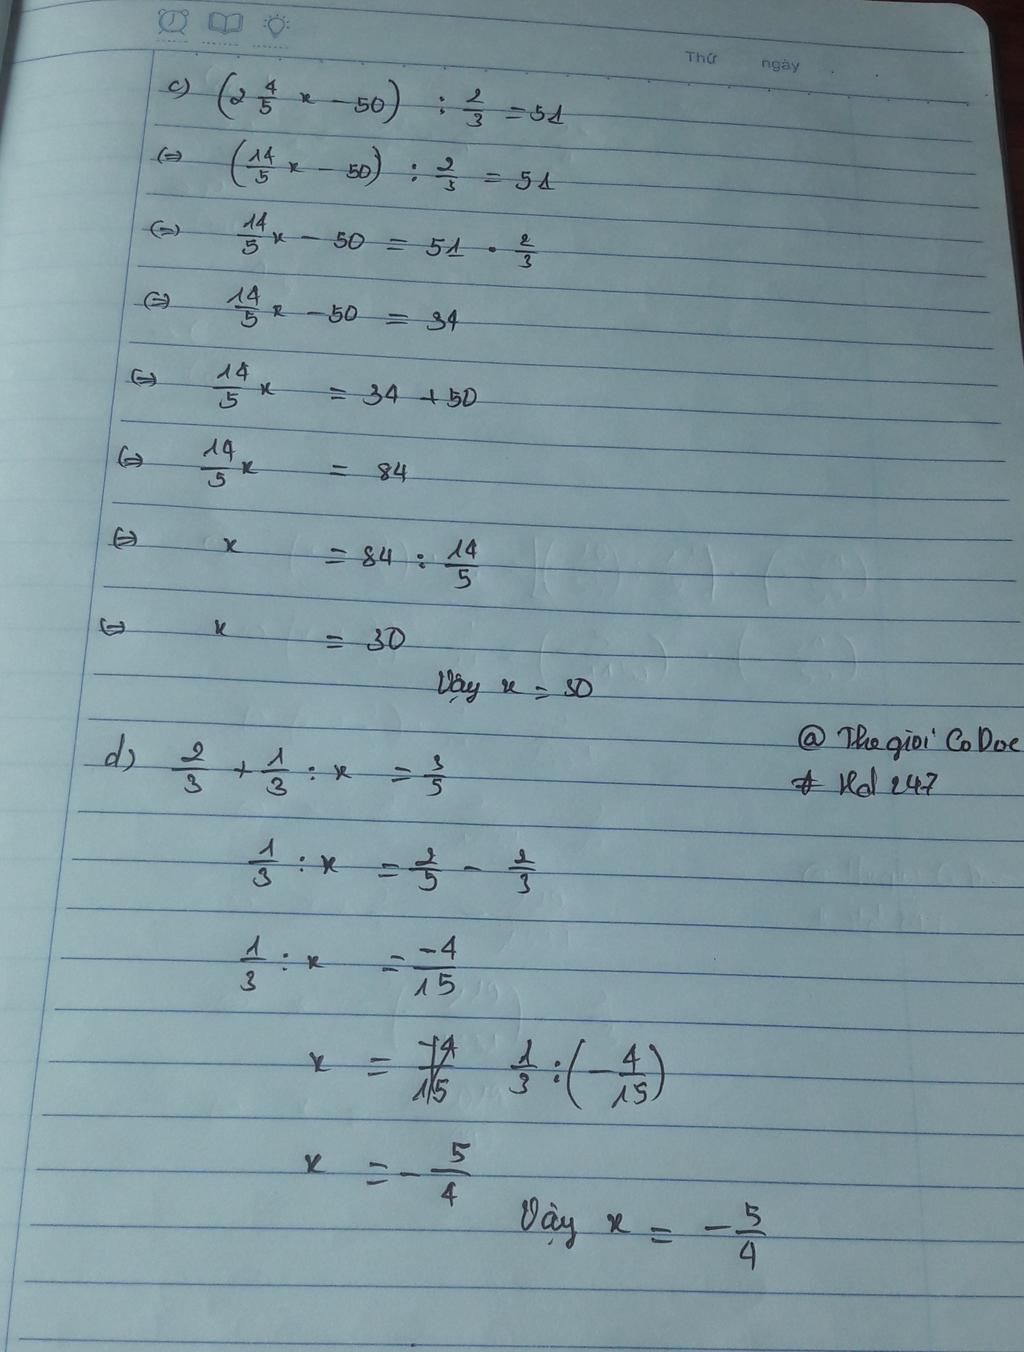 Thứ ngày
c) (2 4/5 x - 50) : 2/3 = 51
(=) (14/5 x - 50) : 2/3 = 51
(=) 14/5 x - 50 = 51 . 2/3
(=) 14/5 x - 50 = 34
(=) 14/5 x = 34 + 50
(=) 14/5 x = 84
(=) x = 84 : 14/5
(=) x = 30
Vậy x = 30
@ Thegioi CoDoc
# Hd 247
d) 2/3 + 1/3 : x = 3/5
1/3 : x = 2/5 - 2/3
1/3 : x = -4/15
x = -4/15 1/3 : (- 4/15)
x = - 5/4
Vậy x = - 5/4